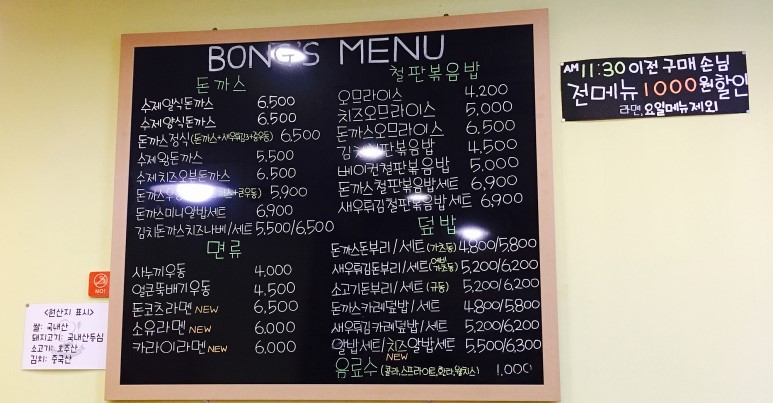 BONG'S MENU
돈까스
수제일식돈까스 6,500
수제양식돈까스 6,500
돈까스정식 (돈까스+새우튀김+중우동) 6,500
수제왕돈까스 5,500
수제치즈오븐돈까스 6,500
5,900
돈까스미니알밥세트 6,900
김치돈까스치즈나베/세트 5,500/6,500
면류
사누끼우동 4,000
얼큰뚝배기우동 4,500
돈코츠라멘 NEW 6,500
소유라멘 NEW 6,000
카라이라멘 NEW 6,000
철판볶음밥
오므라이스 4,200
치즈오므라이스 5,000
돈까스오므라이스 6,500
김치철판볶음밥 4,500
베이컨철판볶음밥 5,000
돈까스철판볶음밥세트 6,900
새우튀김철판볶음밥세트 6,900
덮밥
돈까스돈부리/세트 (가츠동) 4,800/5,800
새우튀김돈부리/세트 5,200/6,200
소고기돈부리/세트 (규동) 5,200/6,200
돈까스카레덮밥/세트 4,800/5,800
새우튀김카레덮밥/세트 5,200/6,200
알밥세트/치즈알밥세트 5,500/6,300
NEW
음료수 (콜라,스프라이트,환타,웰치스) 1,000
AM 11:30 이전 구매 손님
전메뉴 1000원할인
라면, 요일메뉴제외
NO!
<원산지 표시>
쌀: 국내산
돼지고기: 국내산등심
소고기: 호주산
김치: 중국산